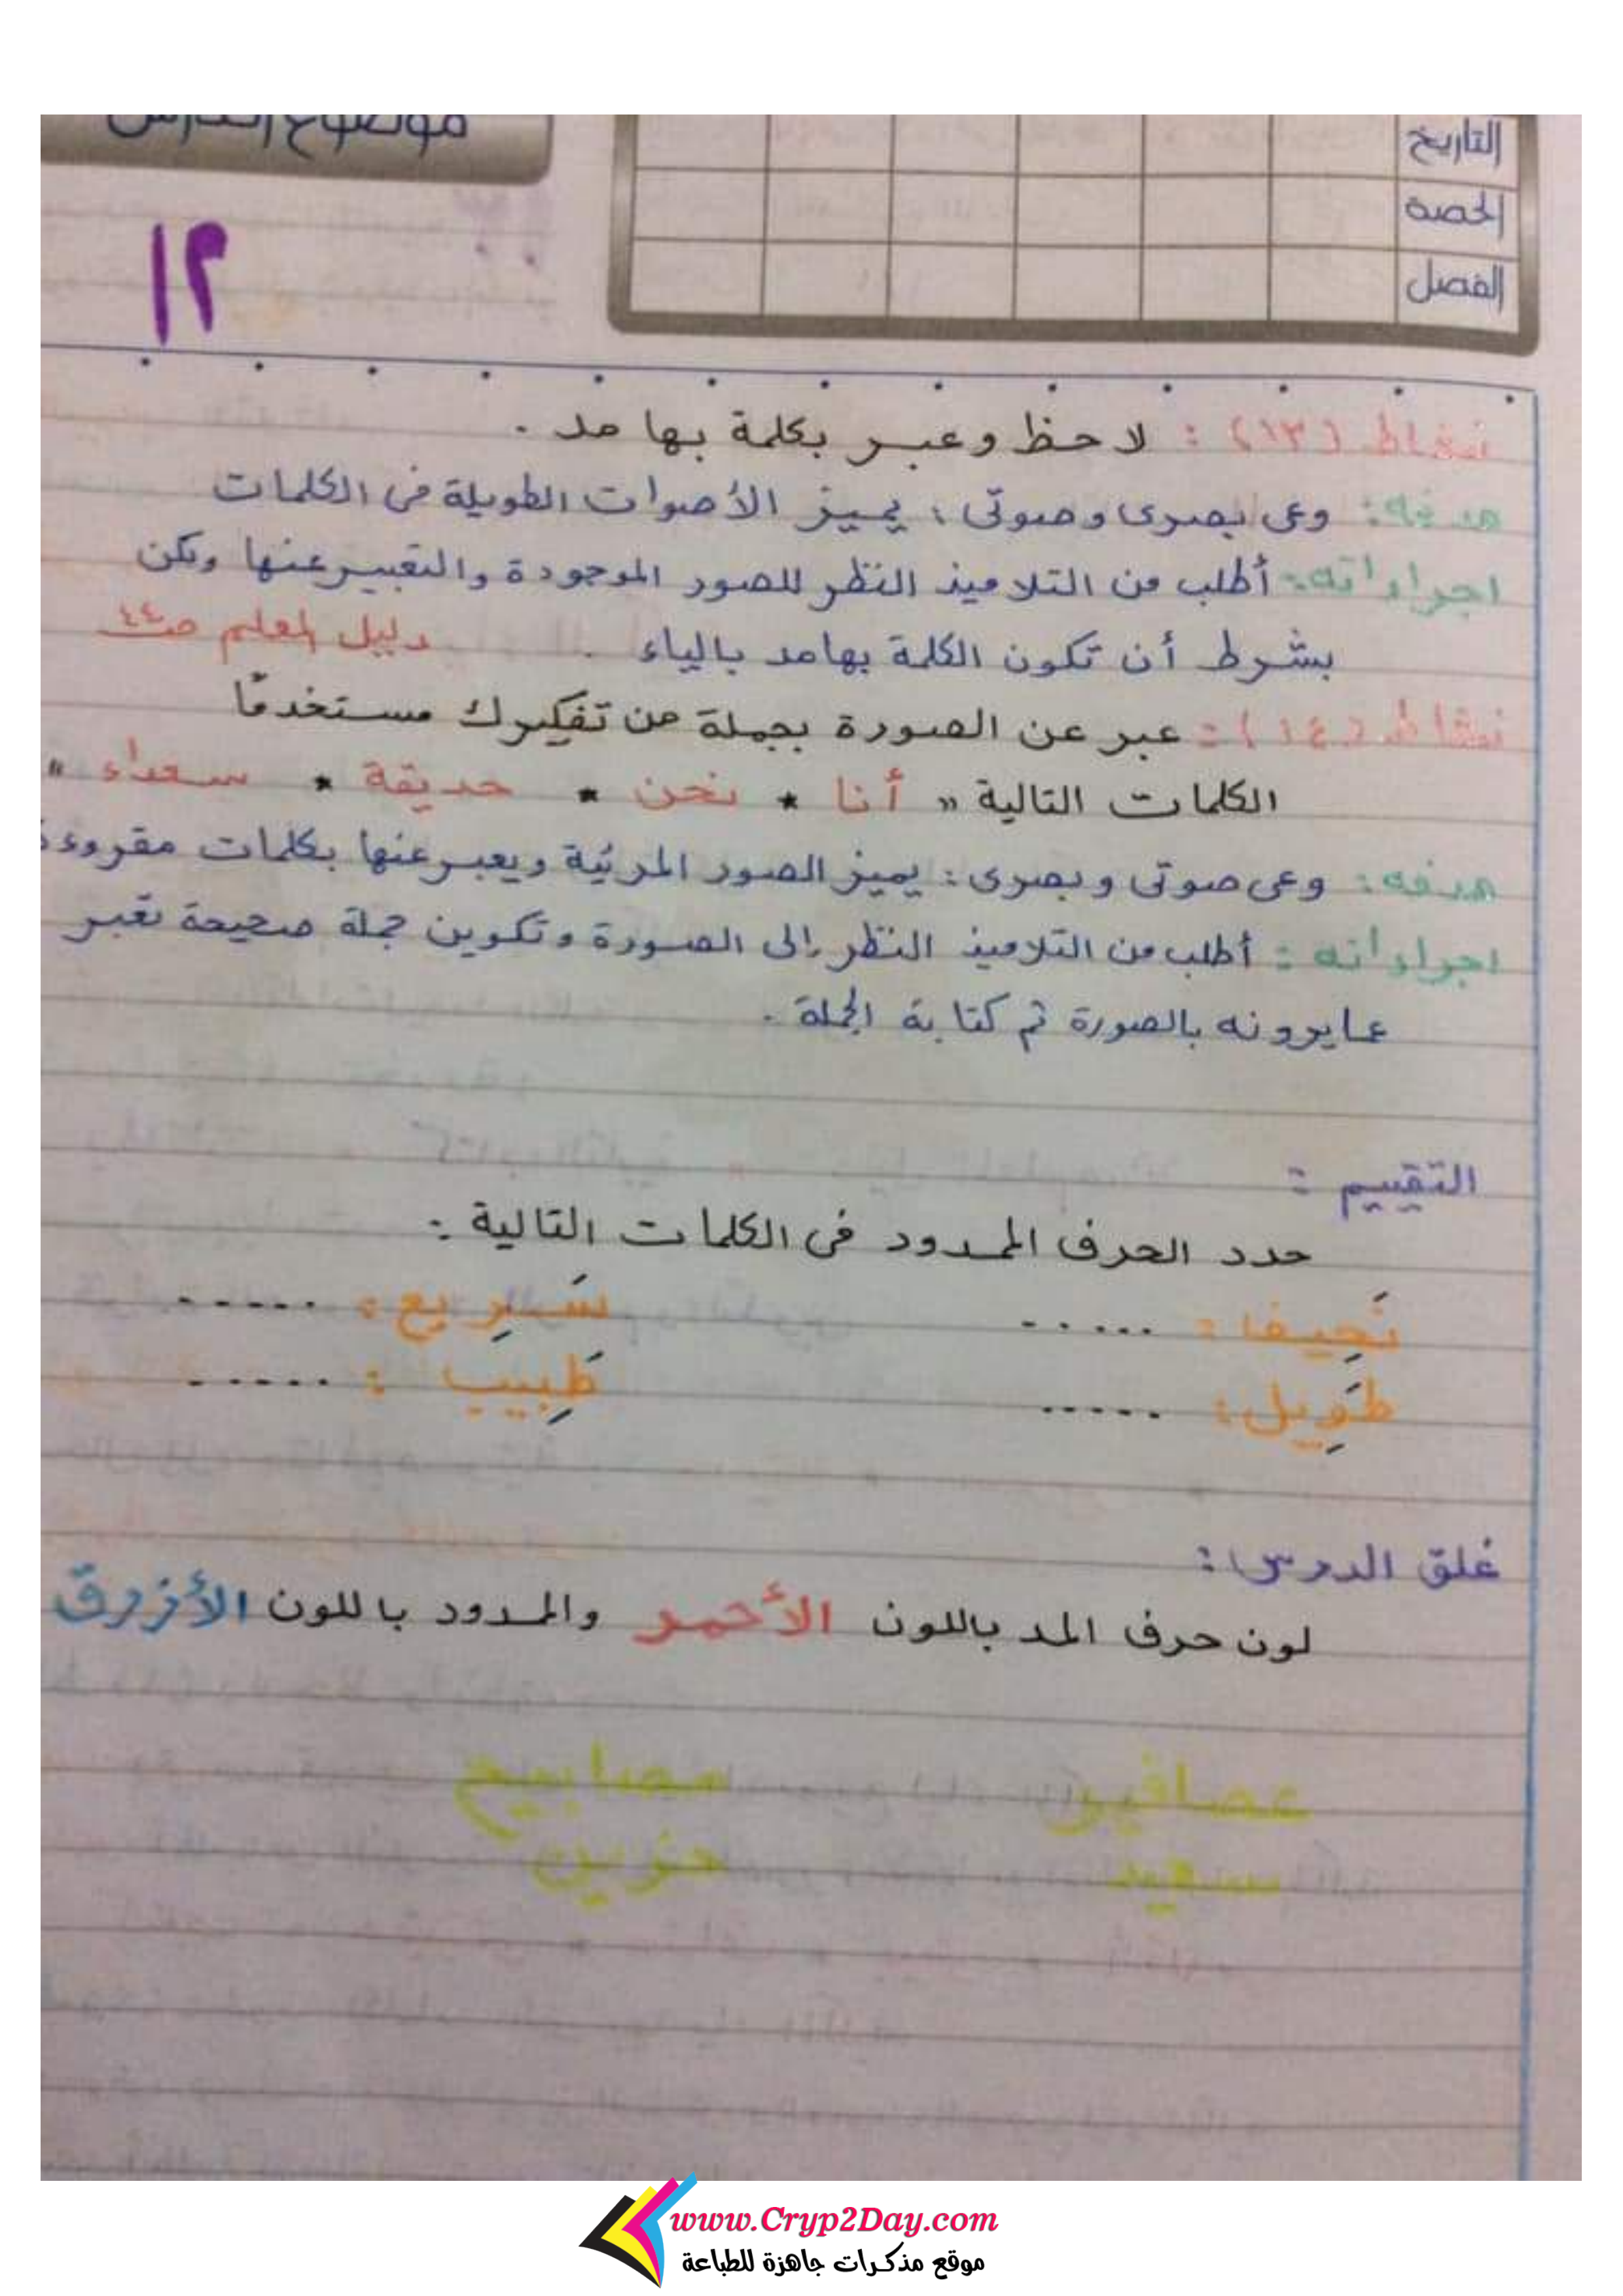 موضوع الدرس
التاريخ
الحصة
الفصل
١٢
نشاط (١٣) : لاحظ وعبر بكلمة بها مد .
هدفه : وعى بصرى وصوتى : يميز الأصوات الطويلة فى الكلمات
اجراءاته : أطلب من التلاميذ النظر للصور الموجودة والتعبير عنها ولكن
بشرط أن تكون الكلمة بها مد بالياء . دليل المعلم ص٤٤
نشاط (١٤) : عبر عن الصورة بجملة من تفكيرك مستخدمًا
الكلمات التالية " أنا * نحن * حديقة * سعداء "
هدفه : وعى صوتى وبصرى : يميز الصور المرئية ويعبر عنها بكلمات مقروءة
اجراءاته : أطلب من التلاميذ النظر إلى الصورة وتكوين جملة صحيحة تعبر
عما يرونه بالصورة ثم كتابة الجملة .
التقييم :
حدد الحرف الممدود فى الكلمات التالية :
نَحِيفا : ...... سَرِيع : ......
طَوِيل : ...... طَبِيب : ......
غلق الدرس :
لون حرف المد باللون الأحمر والممدود باللون الأزرق
عصافير مصابيح
سعيد حزين
www.Cryp2Day.com
موقع مذكرات جاهزة للطباعة